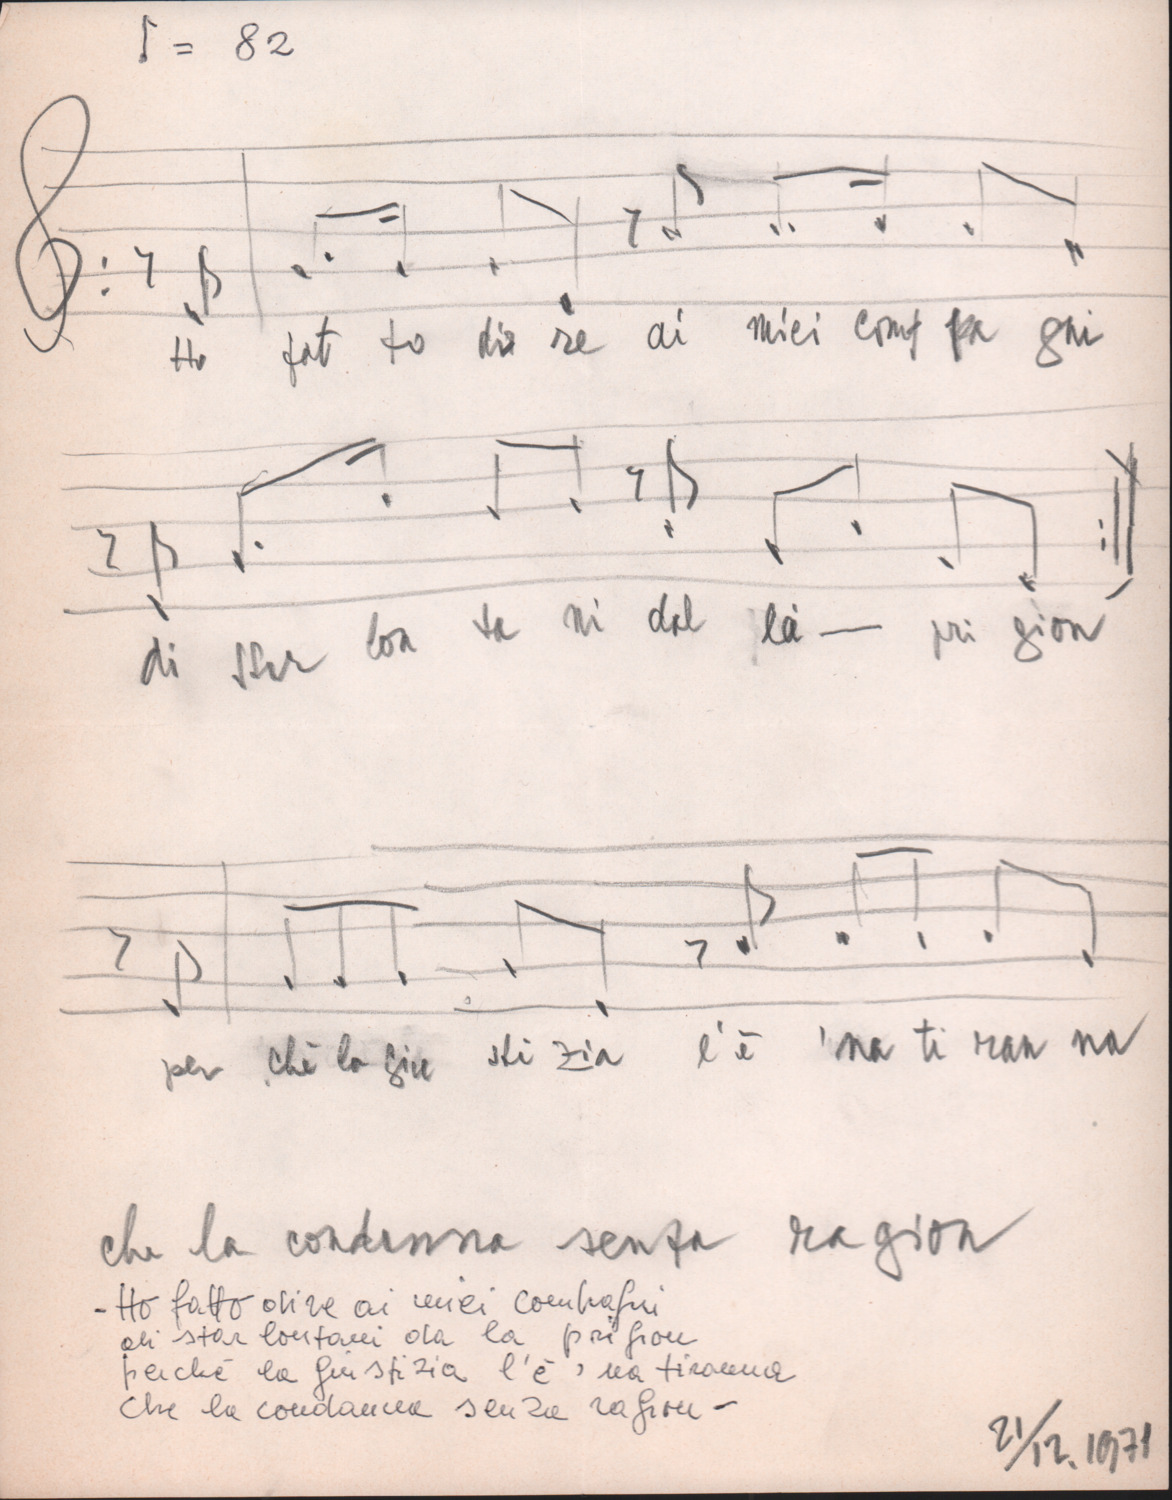 = 82
Ho fat to di re ai miei com pa gni
di star lon ta ni dal la — pri gion
per chè la giu sti zia l'è 'na ti ran na
che la condanna senza ragion
- Ho fatto dire ai miei compagni
di star lontani da la prigion
perchè la giustizia l'è 'na tiranna
che la condanna senza ragion -
21/12.1971